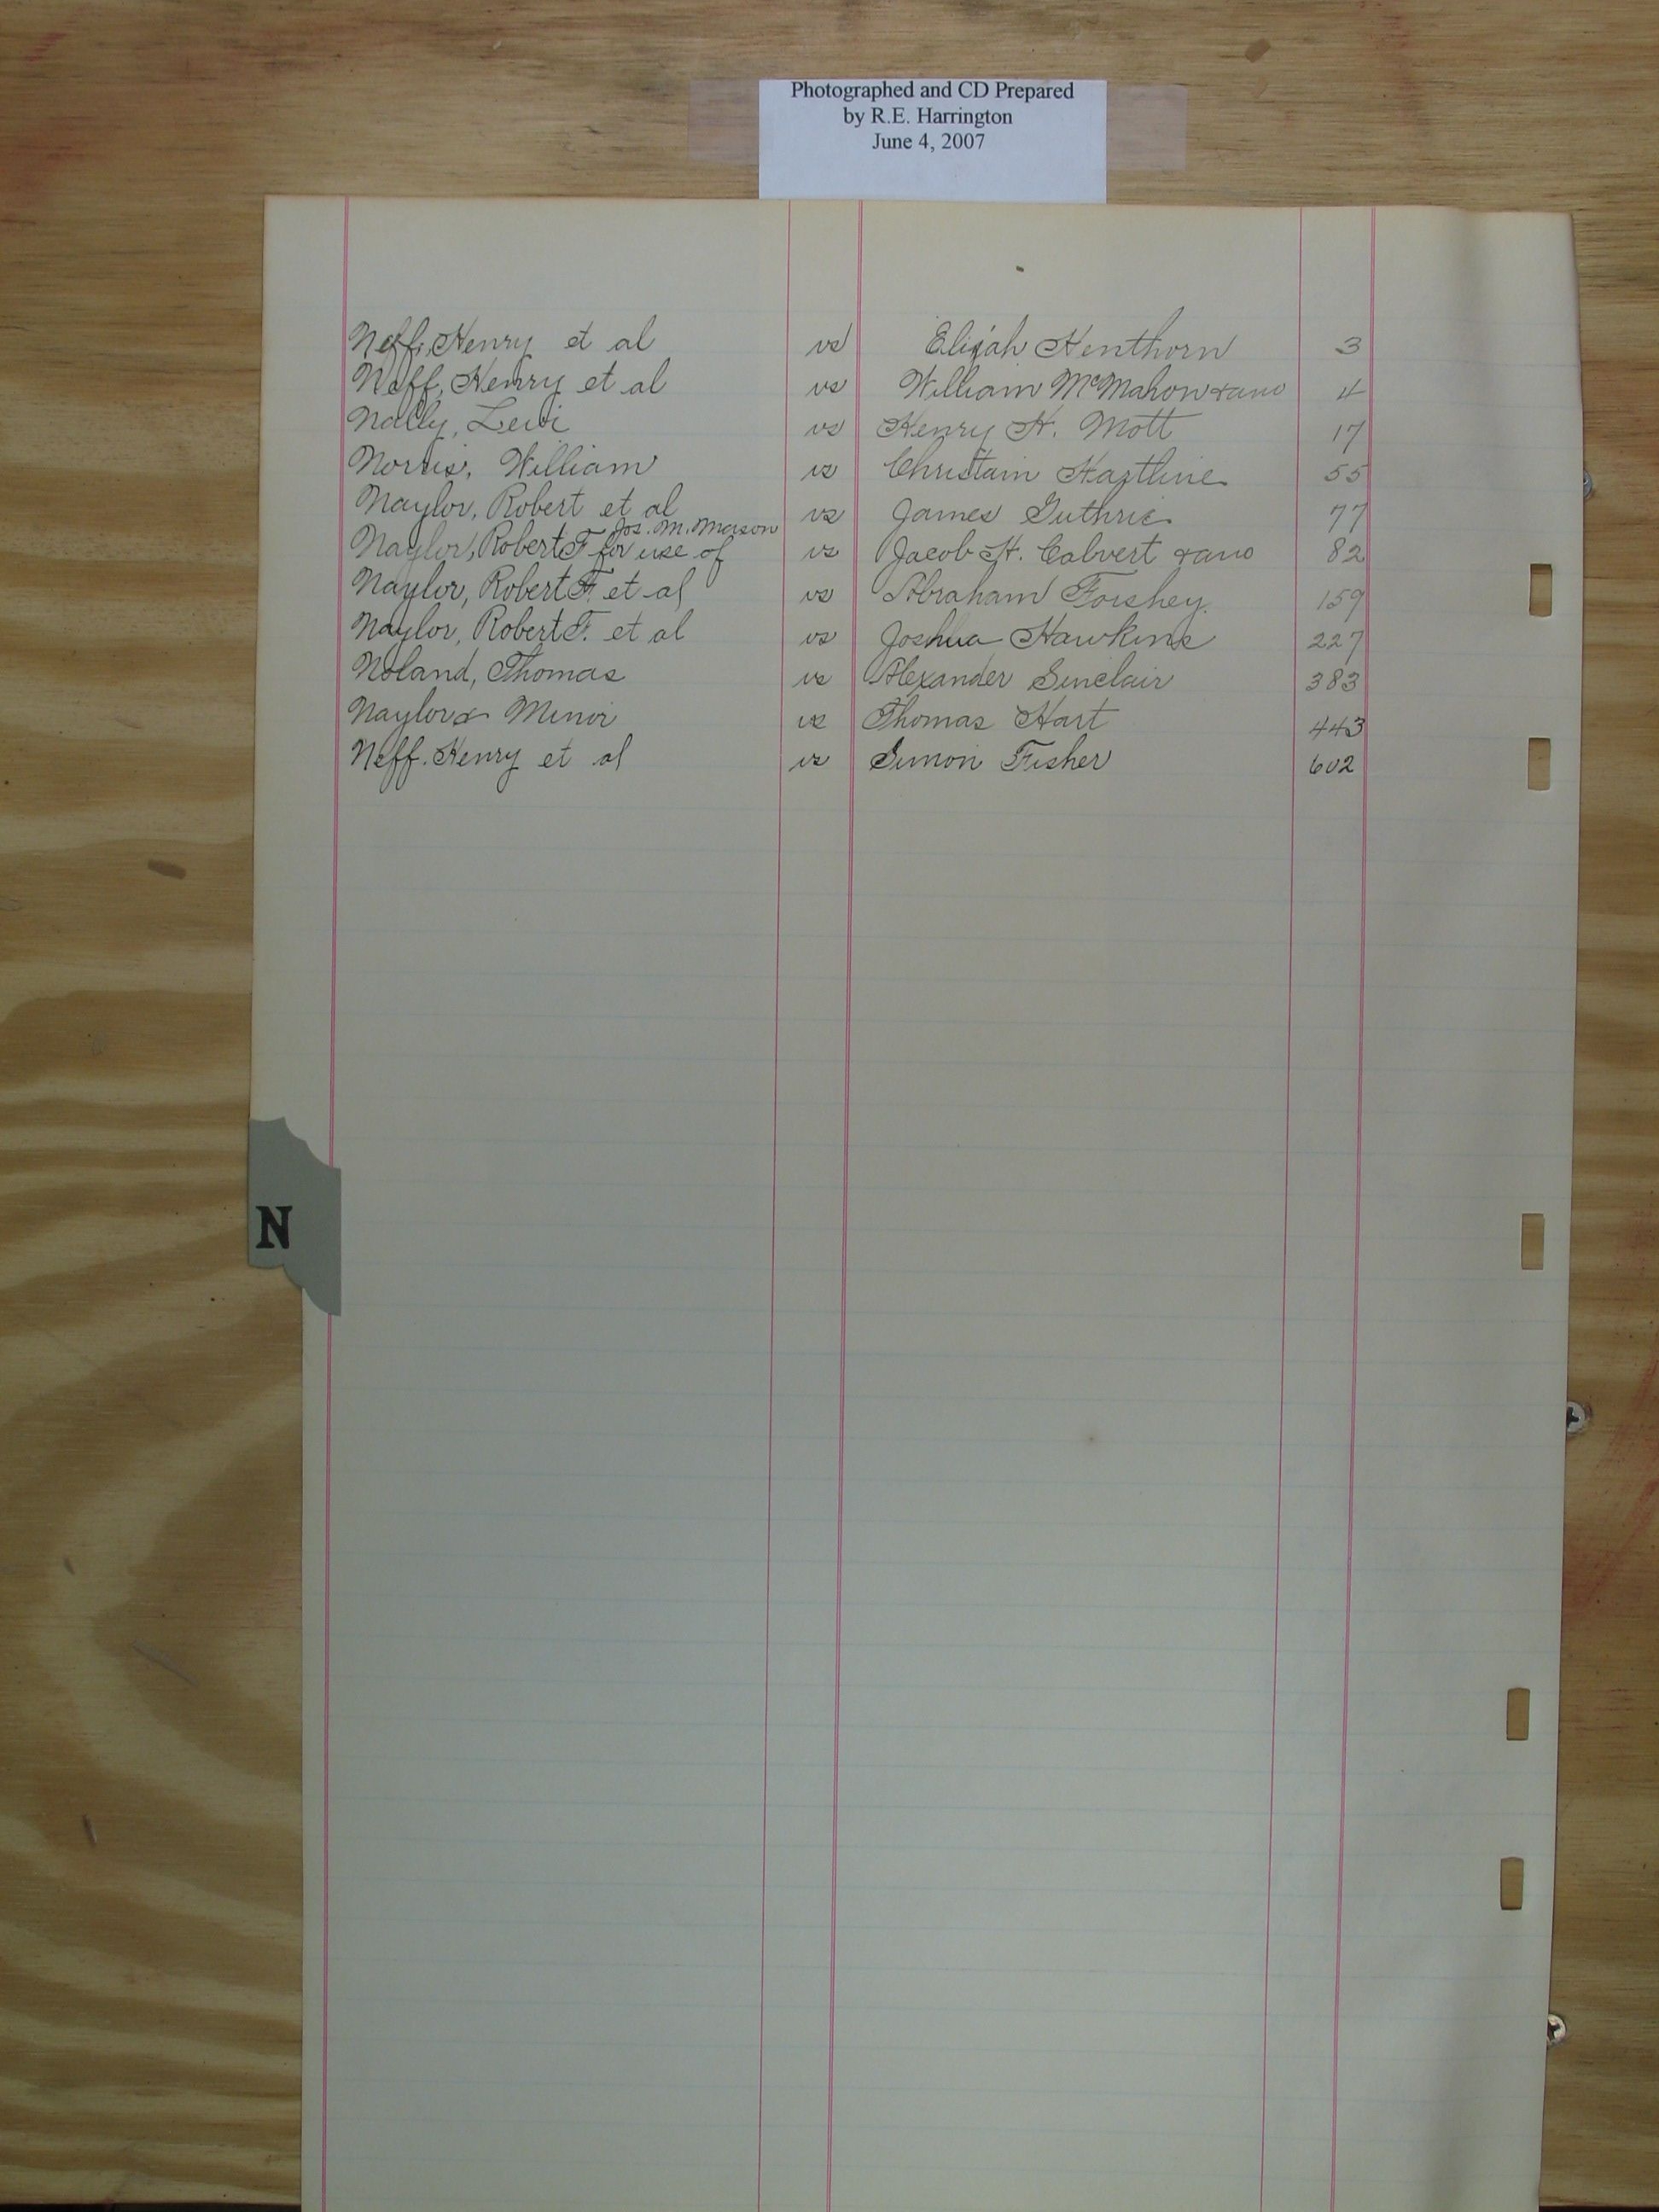 Photographed and CD Prepared
by R.E. Harrington
June 4, 2007
Neff, Henry et al vs Elijah Henthorn 3
Neff, Henry et al vs William McMahon & ano 4
Nally, Levi vs Henry H. Mott 17
Norris, William vs Christain Hartline 55
Naylor, Robert et al vs James Guthrie 77
Jos. M. Mason
Naylor, Robert F for use of vs Jacob H. Calvert & ano 82
Naylor, Robert F. et al vs Abraham Forshey. 159
Naylor, Robert F. et al vs Joshua Hawkins 227
Noland, Thomas vs Alexander Sinclair 383
Naylor & Minor vs Thomas Hart 443
Neff. Henry et al vs Simon Fisher 602
N